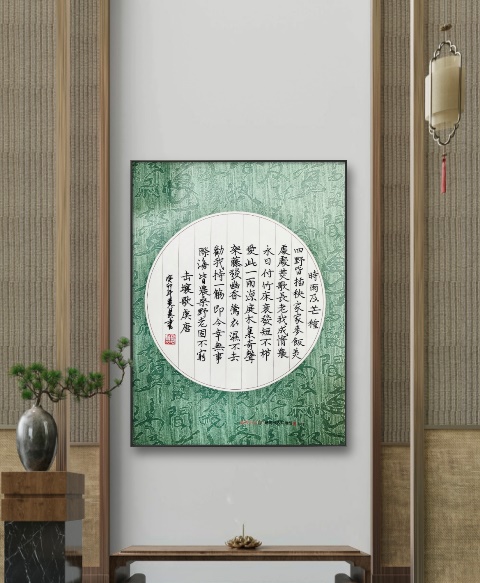 時雨及芒種
四野皆插秧家家麥飯美
處處菱歌長老我成惰農
永日付竹床衰發短不栉
愛此一雨涼庭木集奇聲
架藤發幽香鶯衣濕不去
勸我持一觴即今幸無事
際海皆農桑野老固不窮
击壤歌虞唐
癸卯年書